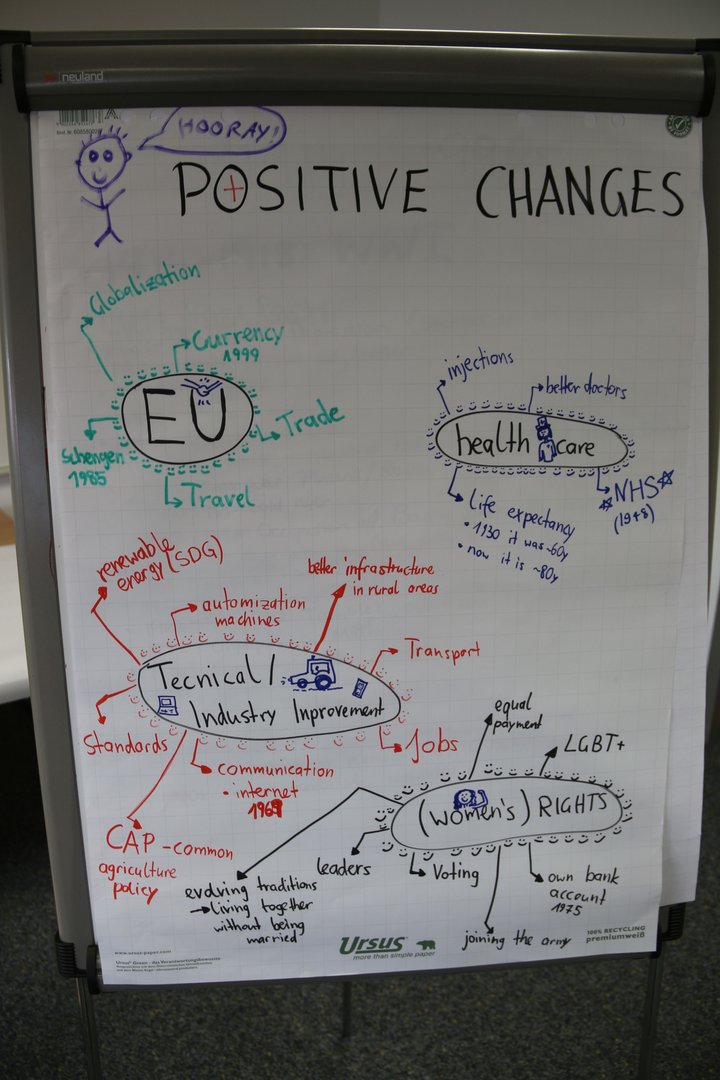 neuland
HOORAY!
POSITIVE CHANGES
Globalization
Currency
1999
EU
Trade
Schengen
1985
Travel
injections
better doctors
health care
Life expectancy
• 1930 it was ~60y
• now it is ~80y
NHS
(1948)
renewable
energy (SDG)
automization
machines
better infrastructure
in rural areas
Transport
Tecnical /
Industry Inprovement
Standards
Jobs
communication
• internet
1969
CAP - common
agriculture
policy
equal
payment
LGBT+
(women's) RIGHTS
leaders
Voting
own bank
account
1975
joining the army
evolving traditions
→ living together
without being
married
www.ursus-paper.com
Ursus
more than simple paper
100% RECYCLING
premiumweiß